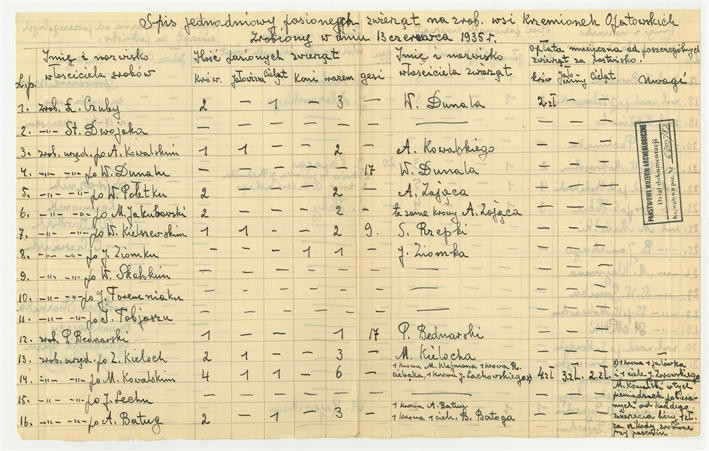 Spis jednodniowy pasionych zwierząt na zrob. wsi Krzemionek Opatowskich
Zrobiony w dniu 13 czerwca 1935 r.
L.p. Imię i nazwisko właściciela zrobów Ilość panonych zwierząt krów. jałowizna cieląt Koni razem gęsi Imię i nazwisko właściciela zwierząt Opłata miesięczna od poszególnych zwierząt za pastwisko. krów jałowizny Cieląt Uwagi
1. zrob. Ł. Czuby 2 – 1 – 3 – W. Dunala 2 zł – –
2. –„– St. Dwojaka – – – – – – –
3. zrob. urzęd. po A. Kowalskim 1 1 – – 2 – A. Kowalskiego – – –
4. –„– –„– po W. Dunalu – – – – – 17 W. Dunala – – –
5. –„– –„– po W. Połetku 2 – – – 2 – A. Zająca – – –
6. –„– –„– po M. Jakubowski 2 – – – 2 – te same krowy A. Zająca – – –
7. –„– –„– po W. Kiełszewskim 1 1 – – 2 9. S. Rzepki – – –
8. –„– –„– po J. Ziomku – – – 1 1 – J. Ziomka – – –
9. –„– –„– po W. Skalskim – – – – – – –
10. –„– –„– po J.
11. –„– –„– po J. Tobjaszu – – – – – – –
12. zrob. P. Bednarski 1 – – – 1 17 P. Bednarski – – –
13. zrob. urzęd. po Z. Kieloch 2 1 – – 3 – M. Kielocha – – –
14. –„– –„– po M. Kowalskim 4 1 1 – 6 – 1 krowa M. Klajmona 1 krowa R. 1 krowa J. Lachowskiego x) 4 zł 3 zł. 2 zł. x) 1 krowa 1 jałówka i 1 ciele J.
15. –„– –„– po J. Lechu – – – – – – – M. Kowalski w tych pieniądzach
16. –„– –„– po A. Batug 2 – 1 – 3 – 1 krowa A. Batug 1 krowa 1 ciele. B. Batoga – – – od każdego zwierzęcia bierze 1 zł. za szkody zrobione przy pastwisku
PAŃSTWOWE MUZEUM ARCHEOLOGICZNE
Dział dokumentacji